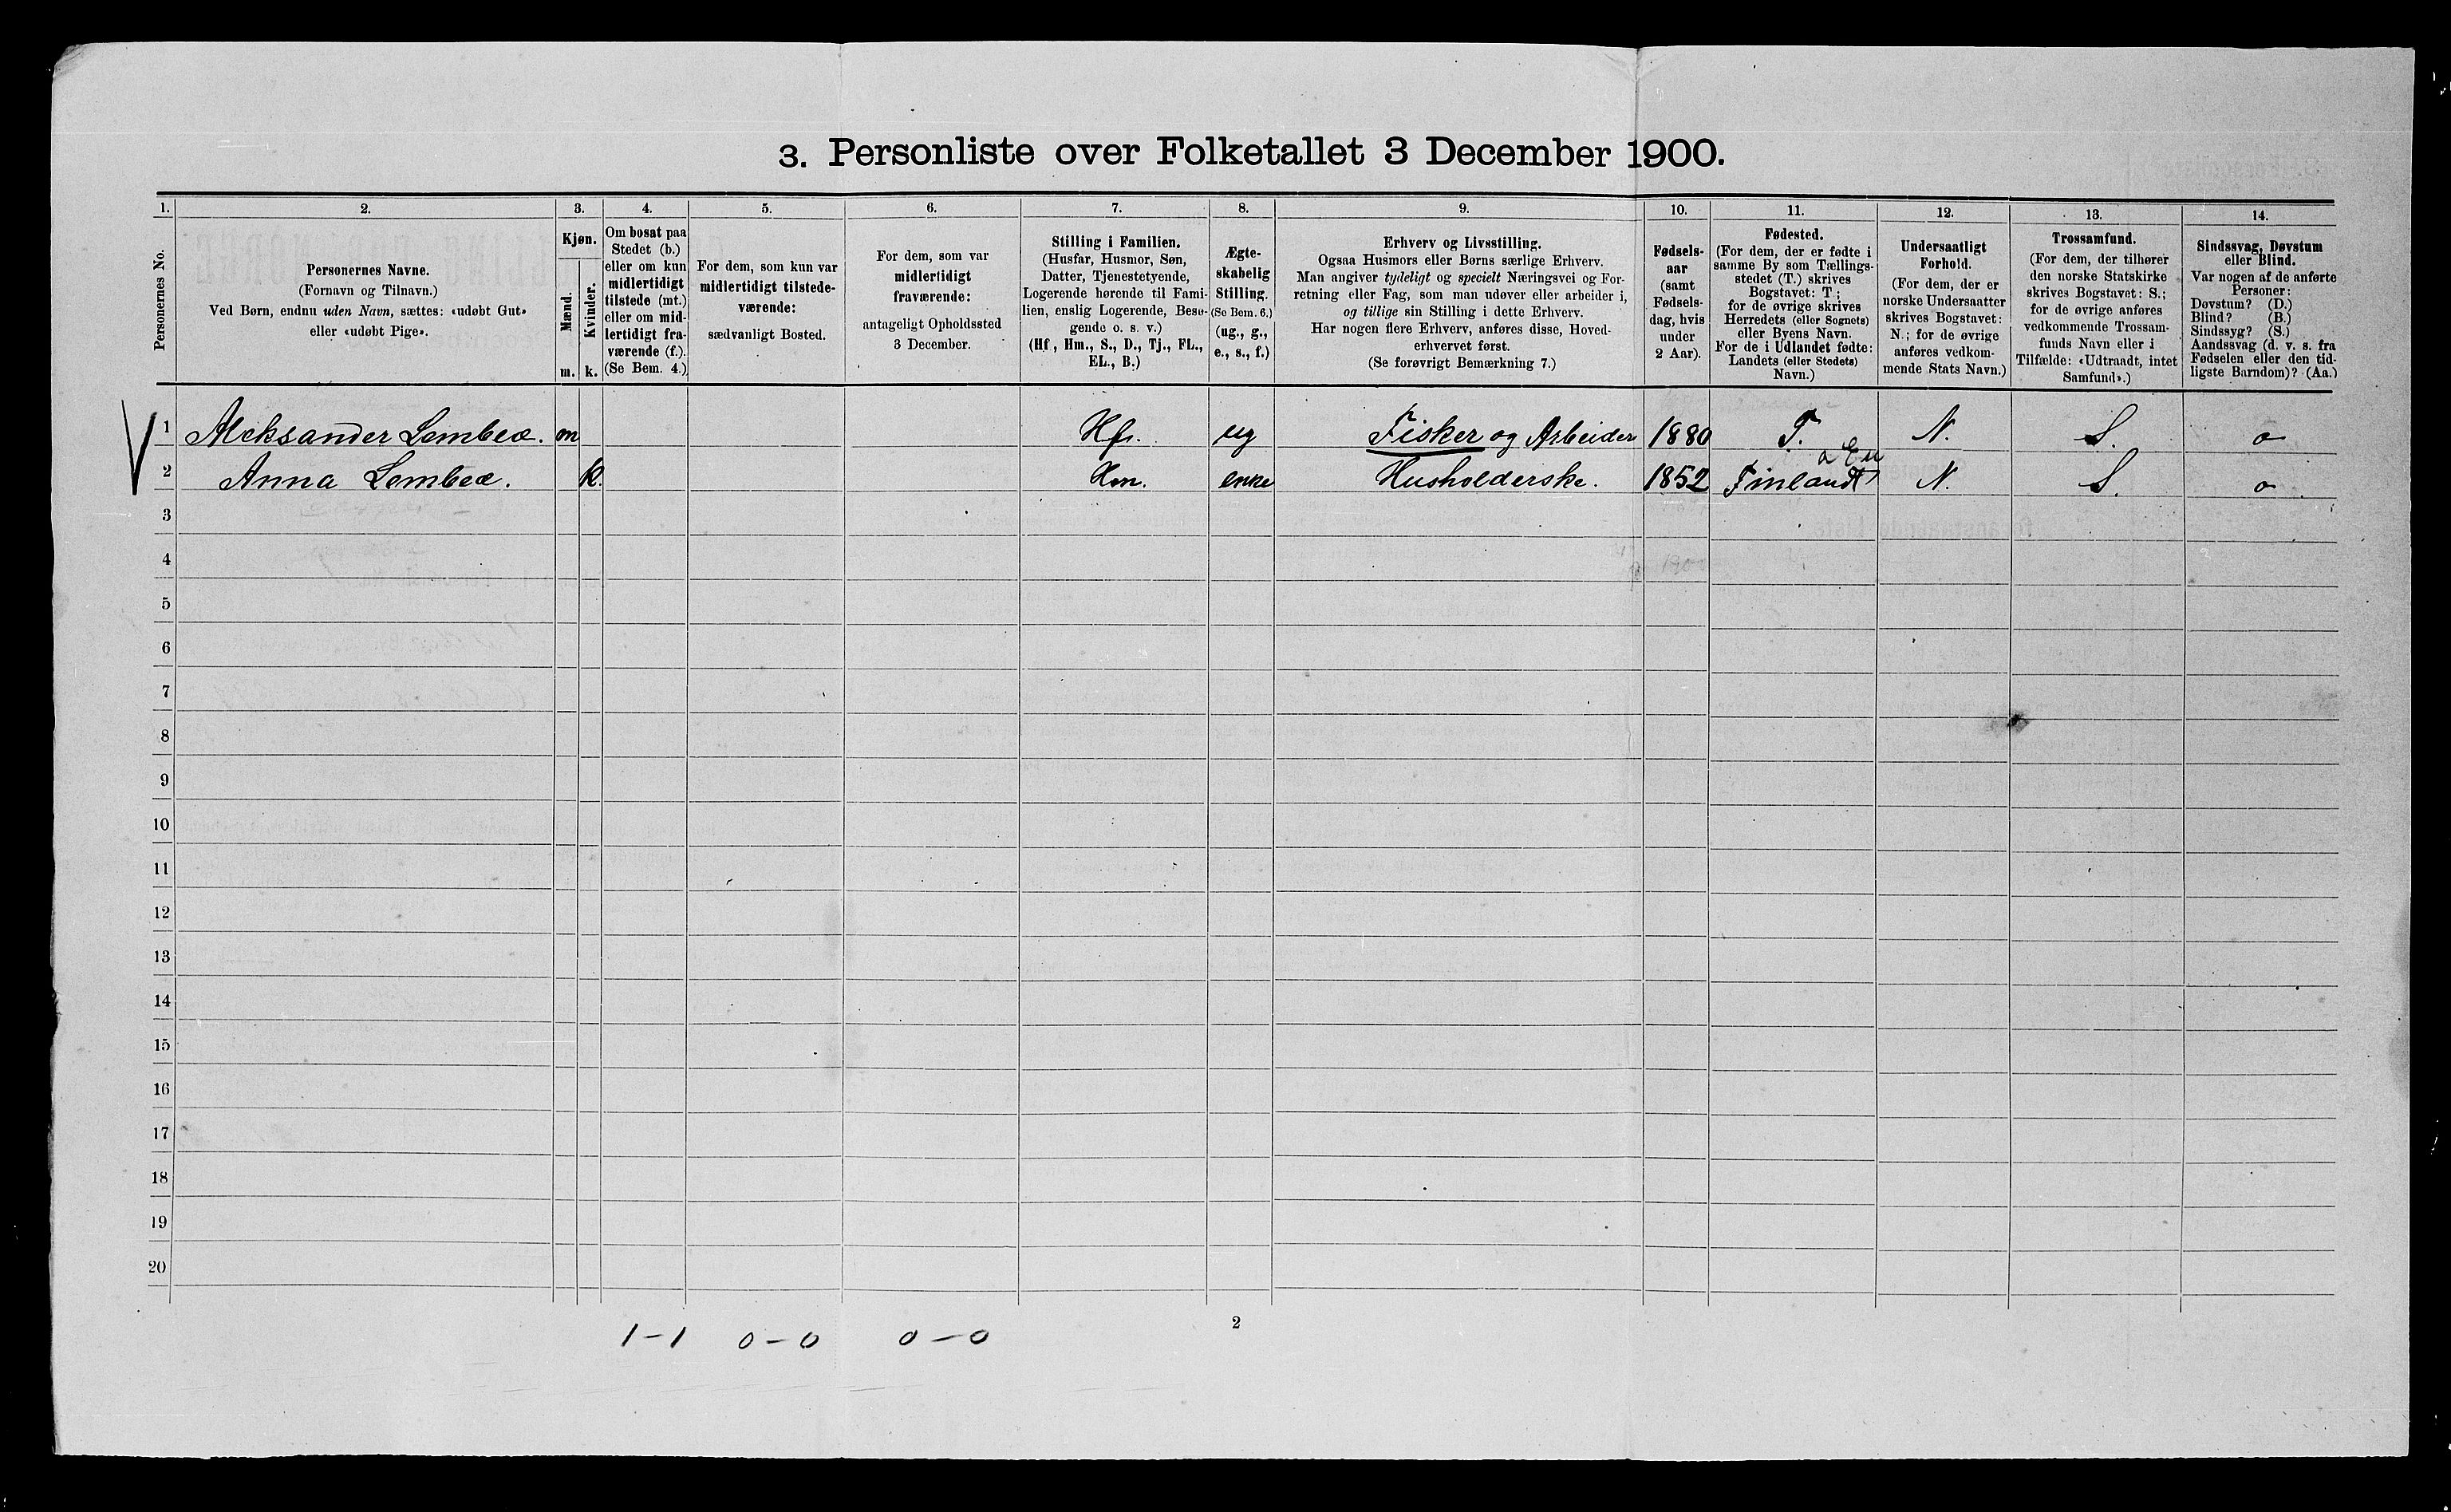 3. Personliste over Folketallet 3 December 1900.
1. 2. 3. 4. 5. 6. 7. 8. 9. 10. 11. 12. 13. 14.
Personernes No.
Personernes Navne.
(Fornavn og Tilnavn.)
Ved Børn, endnu uden Navn, sættes: «udøbt Gut»
eller «udøbt Pige».
Kjøn.
Mænd.
Kvinder.
m. k.
Om bosat paa
Stedet (b.)
eller om kun
midlertidigt
tilstede (mt.)
eller om mid-
lertidigt fra-
værende (f.).
(Se Bem. 4.)
For dem, som kun var
midlertidigt tilstede-
værende:
sædvanligt Bosted.
For dem, som var
midlertidigt
fraværende:
antageligt Opholdssted
3 December.
Stilling i Familien.
(Husfar, Husmor, Søn,
Datter, Tjenestetyende,
Logerende hørende til Fami-
lien, enslig Logerende, Besø-
gende o. s. v.)
(Hf., Hm., S., D., Tj., FL.,
EL., B.)
Ægte-
skabelig
Stilling.
(Se Bem. 6.)
(ug., g.,
e., s., f.)
Erhverv og Livsstilling.
Ogsaa Husmors eller Børns særlige Erhverv.
Man angiver tydeligt og specielt Næringsvei og For-
retning eller Fag, som man udøver eller arbeider i,
og tillige sin Stilling i dette Erhverv.
Har nogen flere Erhverv, anføres disse, Hoved-
erhvervet først.
(Se forøvrigt Bemærkning 7.)
Fødsels-
aar
(samt
Fødsels-
dag, hvis
under
2 Aar).
Fødested.
(For dem, der er fødte i
samme By som Tællings-
stedet (T.) skrives
Bogstavet: T;
for de øvrige skrives
Herredets (eller Sognets)
eller Byens Navn.
For de i Udlandet fødte:
Landets (eller Stedets)
Navn.)
Undersaatligt
Forhold.
(For dem, der er
norske Undersaatter
skrives Bogstavet:
N.; for de øvrige
anføres vedkom-
mende Stats Navn.)
Trossamfund.
(For dem, der tilhører
den norske Statskirke
skrives Bogstavet: S.;
for de øvrige anføres
vedkommende Trossam-
funds Navn eller i
Tilfælde: «Udtraadt, intet
Samfund».)
Sindssvag, Døvstum
eller Blind.
Var nogen af de anførte
Personer:
Døvstum? (D.)
Blind? (B.)
Sindssyg? (S.)
Aandssvag (d. v. s. fra
Fødselen eller den tid-
ligste Barndom)? (Aa.)
1 Aleksander Lembeæ. m Hf. ug Fisker og Arbeider 1880 T. N. S. o
2 Anna Lembeæ. k. Hm. enke Husholderske. 1852 Finland N. S. o
3
4
5
6
7
8
9
10
11
12
13
14
15
16
17
18
19
20
2
1-1 0-0 0-0